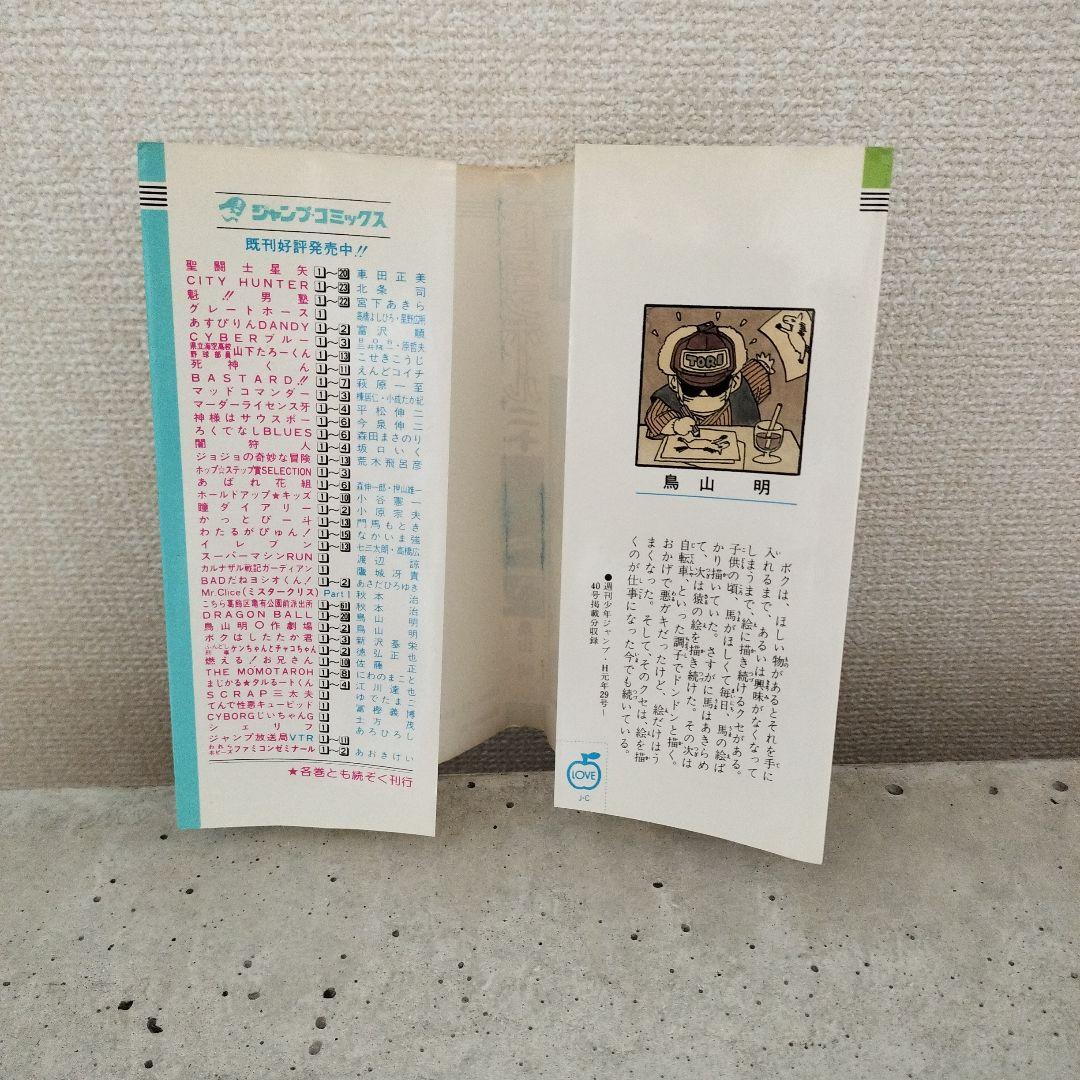 ジャンプ・コミックス
既刊好評発売中!!
聖闘士星矢 1~20 車田正美
CITY HUNTER 1~23 北条司
魁!!男塾 1~22 宮下あきら
グレートホース 1 高橋よしひろ・星野広明
あすぴりんDANDY 1~2 富沢順
CYBERブルー 1~3 原哲夫
県立海空高校野球部員山下たろーくん 1~13 こせきこうじ
死神くん 1~11 えんどコイチ
BASTARD!! 1~7 萩原一至
マッドコマンダー 1~3 榛居仁・小成たか紀
マーダーライセンス牙 1~4 平松伸二
神様はサウスポー 1~6 今泉伸二
ろくでなしBLUES 1~6 森田まさのり
闇狩人 1~4 坂口いく
ジョジョの奇妙な冒険 1~13 荒木飛呂彦
ホップ☆ステップ賞SELECTION 1~3
あばれ花組 1~6
ホールドアップ★キッズ 1~10 小谷憲一
瞳ダイアリー 1~2 小原宗夫
かっとび一斗 1~13 門馬もとき
わたるがぴゅん! 1~15 なかいま強
イレブン 1~13 七三太朗・高橋広
スーパーマシンRUN 1 渡辺諒
カルナザル戦記ガーディアン 1 鷹城冴貴
BADだねヨシオくん! 1~2 あさだひろゆき
Mr.Clice(ミスタークリス) Part1 秋本治
こちら葛飾区亀有公園前派出所 1~61 秋本治
DRAGON BALL 1~20 鳥山明
鳥山明○作劇場 1~2 鳥山明
ボクはしたたか君 1~3 新沢基栄
ふんどし刑事ケンちゃんとチャコちゃん 1~2 徳弘正也
燃える!お兄さん 1~10 佐藤正
THE MOMOTAROH 1~8 にわのまこと
まじかる★タルるートくん 1~4 江川達也
SCRAP三太夫 1 ゆでたまご
てんで性悪キューピッド 1 冨樫義博
CYBORGじいちゃんG 1 土方茂
シェリフ 1 あろひろし
ジャンプ放送局VTR 1~11
われらホビーズファミコンゼミナール 1~2 あおきけい
★各巻とも続ぞく刊行
TORI
鳥山明
ボクは、ほしい物があるとそれを手に
入れるまで、あるいは興味がなくなって
しまうまで、絵に描き続けるクセがある。
子供の頃、馬がほしくて毎日、馬の絵ば
かり描いていた。さすがに馬はあきらめ
て、次は猿の絵を描き続けた。その次は
自転車、といった調子でドンドンと描く。
おかげで悪ガキだったけど、絵だけはう
まくなった。そして、そのクセは、絵を描
くのが仕事になった今でも続いている。
●週刊少年ジャンプ・H元年29号~
40号掲載分収録
LOVE
J-C